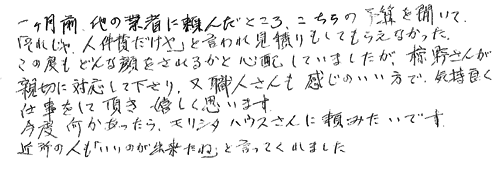 一ヶ月前、他の業者に頼んだところ、こちらの予算を聞いて、
「それじゃ、人件費だけや」と言われ見積りもしてもらえなかった。
この度もどんな顔をされるかと心配していましたが、椋野さんが
親切に対応して下さり、又職人さんも感じのいい方で、気持良く
仕事をして頂き嬉しく思います。
今度何かあったら、モリシタハウスさんに頼みたいです。
近所の人も「いいのが出来たね」と言ってくれました